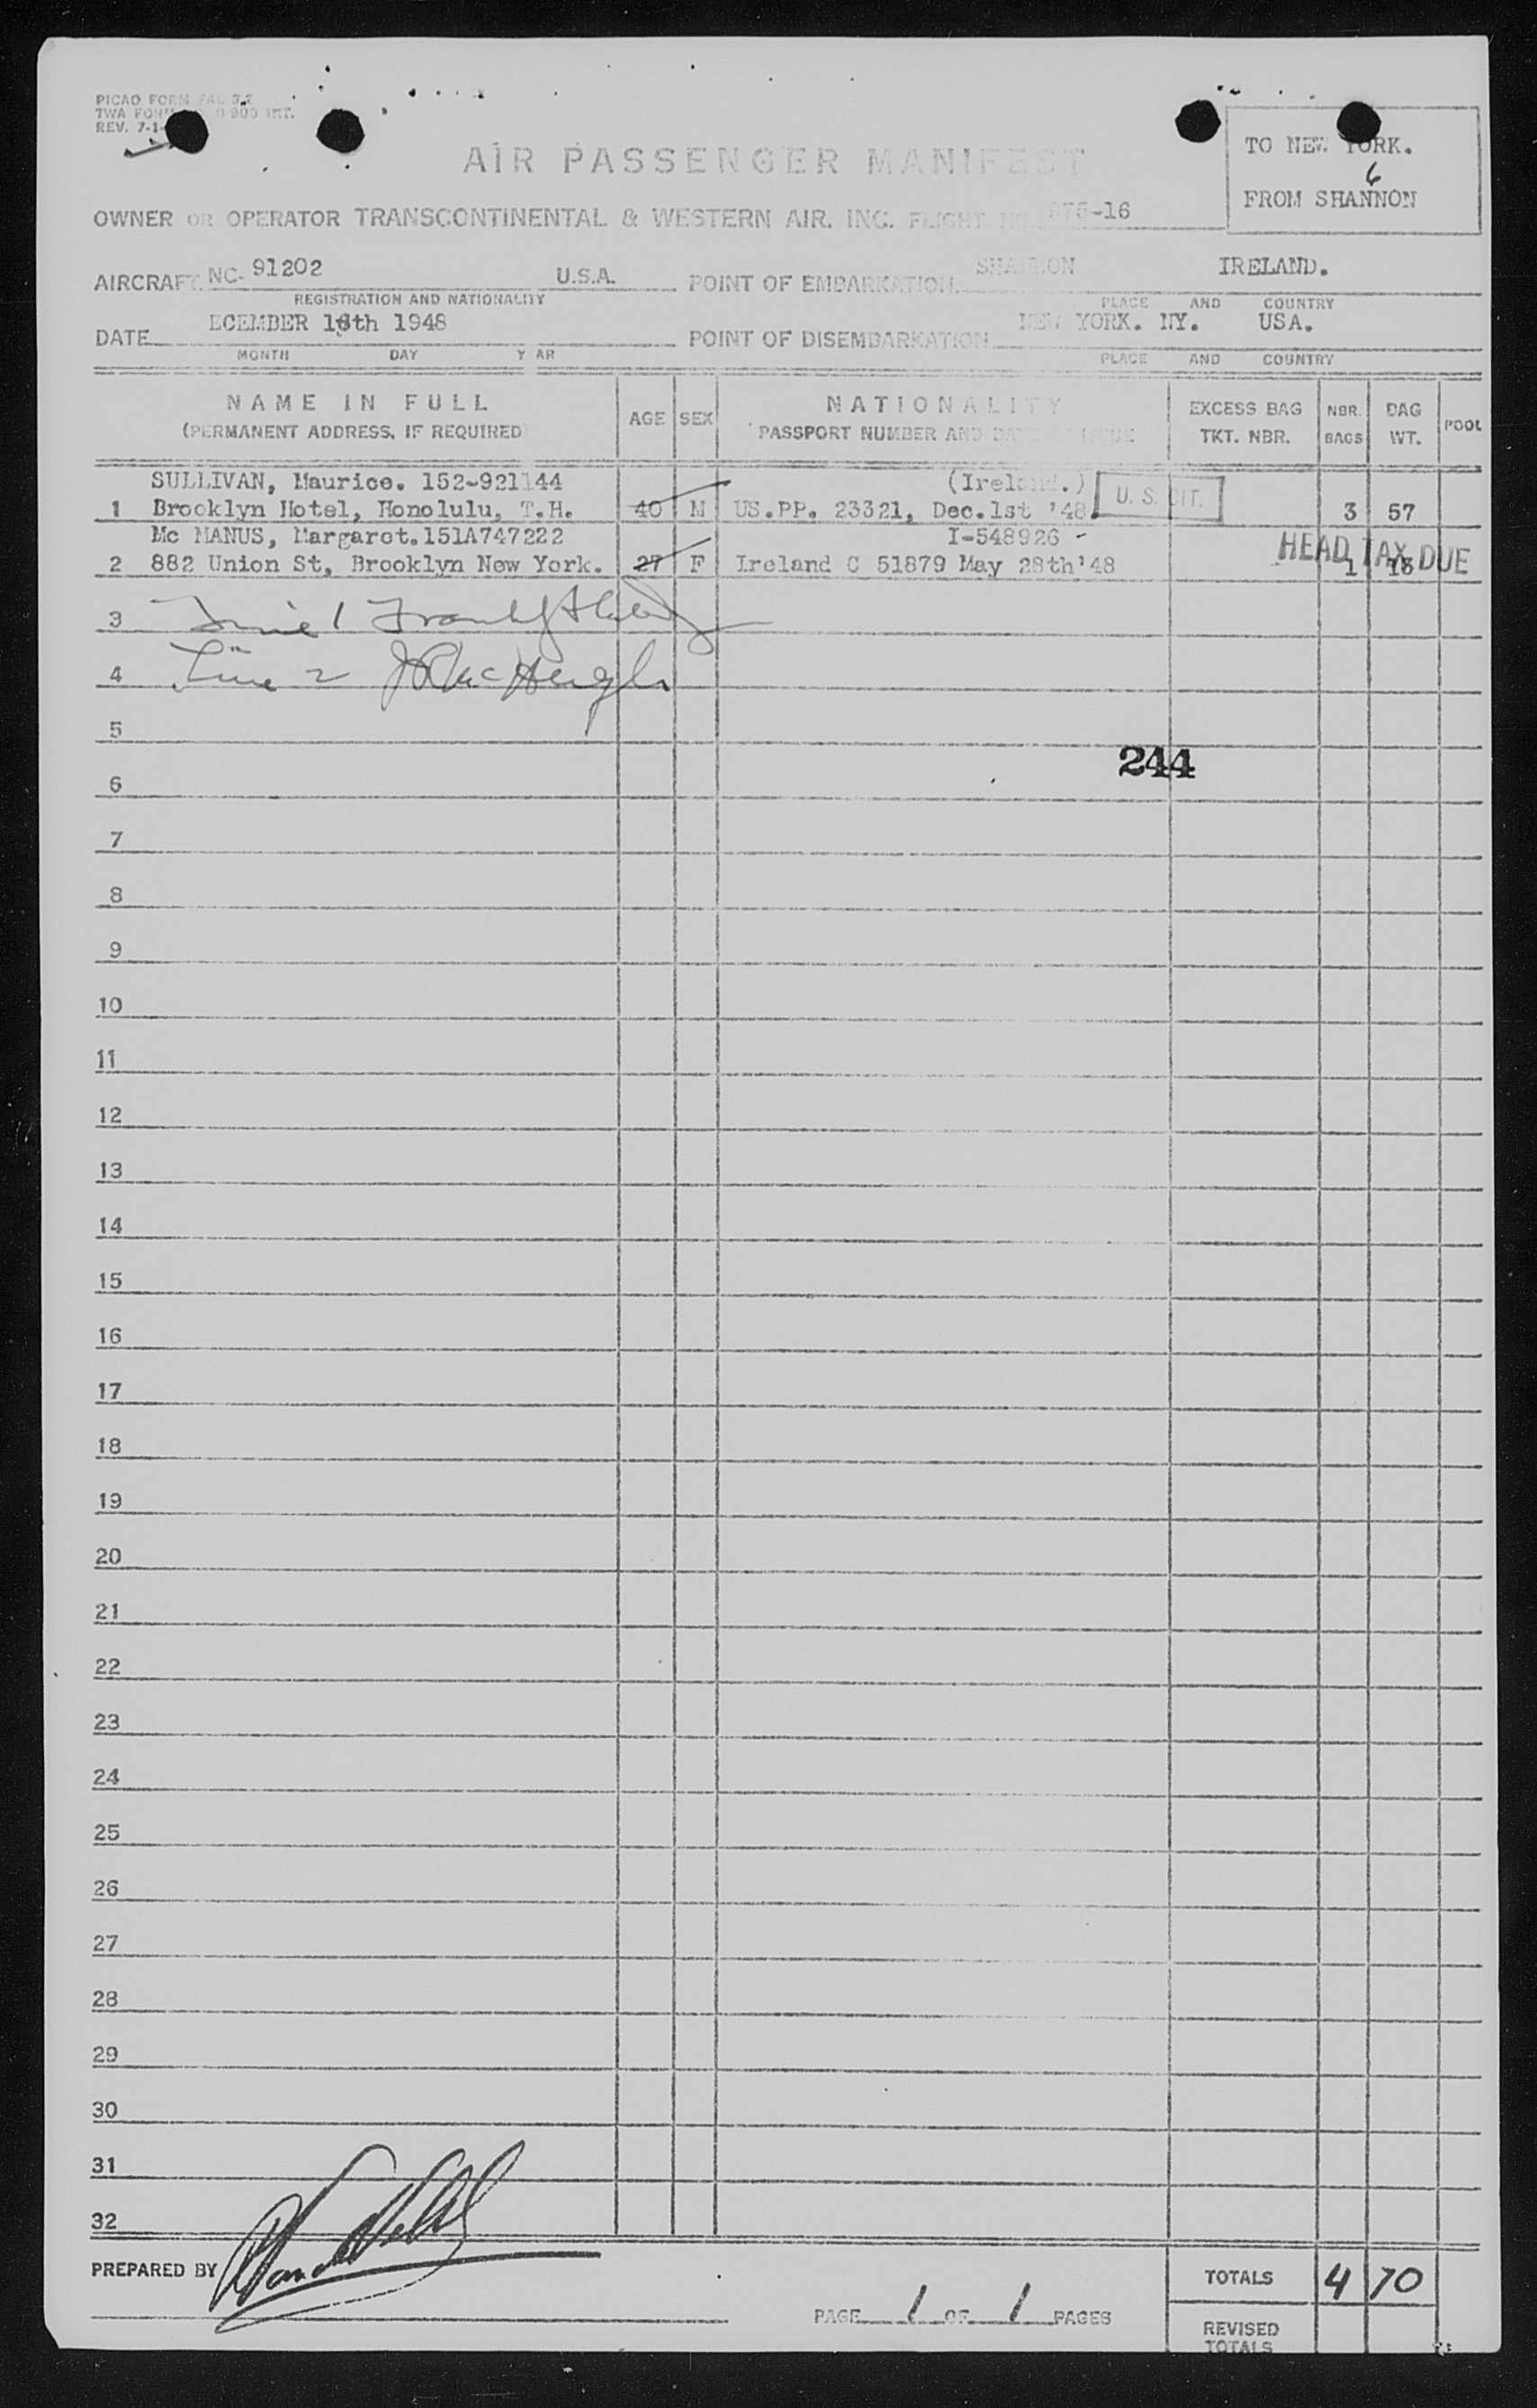 PICAO FORM FAL 3.2
TWA FORM 0-900 INT.
REV. 7-1-
TO NEW YORK.
6
FROM SHANNON
AIR PASSENGER MANIFEST
OWNER OR OPERATOR TRANSCONTINENTAL & WESTERN AIR. INC. FLIGHT NO. 976-16
AIRCRAFT NC- 91202 U.S.A. POINT OF EMBARKATION SHANNON IRELAND.
REGISTRATION AND NATIONALITY PLACE AND COUNTRY
DATE ECEMBER 16th 1948 POINT OF DISEMBARKATION NEW YORK. NY. USA.
MONTH DAY Y AR PLACE AND COUNTRY
NAME IN FULL AGE SEX NATIONALITY EXCESS BAG NBR. BAG POOL
(PERMANENT ADDRESS, IF REQUIRED) PASSPORT NUMBER AND DATE OF ISSUE TKT. NBR. BAGS WT.
SULLIVAN, Maurice. 152-921144 (Ireland.) U. S. CIT.
1 Brooklyn Hotel, Honolulu, T.H. 40 M US.PP. 23321, Dec.1st '48. 3 57
Mc MANUS, Margaret.151A747222 I-548926 - HEAD TAX DUE
2 882 Union St, Brooklyn New York. 27 F Ireland C 51879 May 28th'48 1 13
3 Line 1
4 Line 2
5
244
6
7
8
9
10
11
12
13
14
15
16
17
18
19
20
21
22
23
24
25
26
27
28
29
30
31
32
PREPARED BY
TOTALS 4 70
PAGE 1 OF 1 PAGES
REVISED
TOTALS